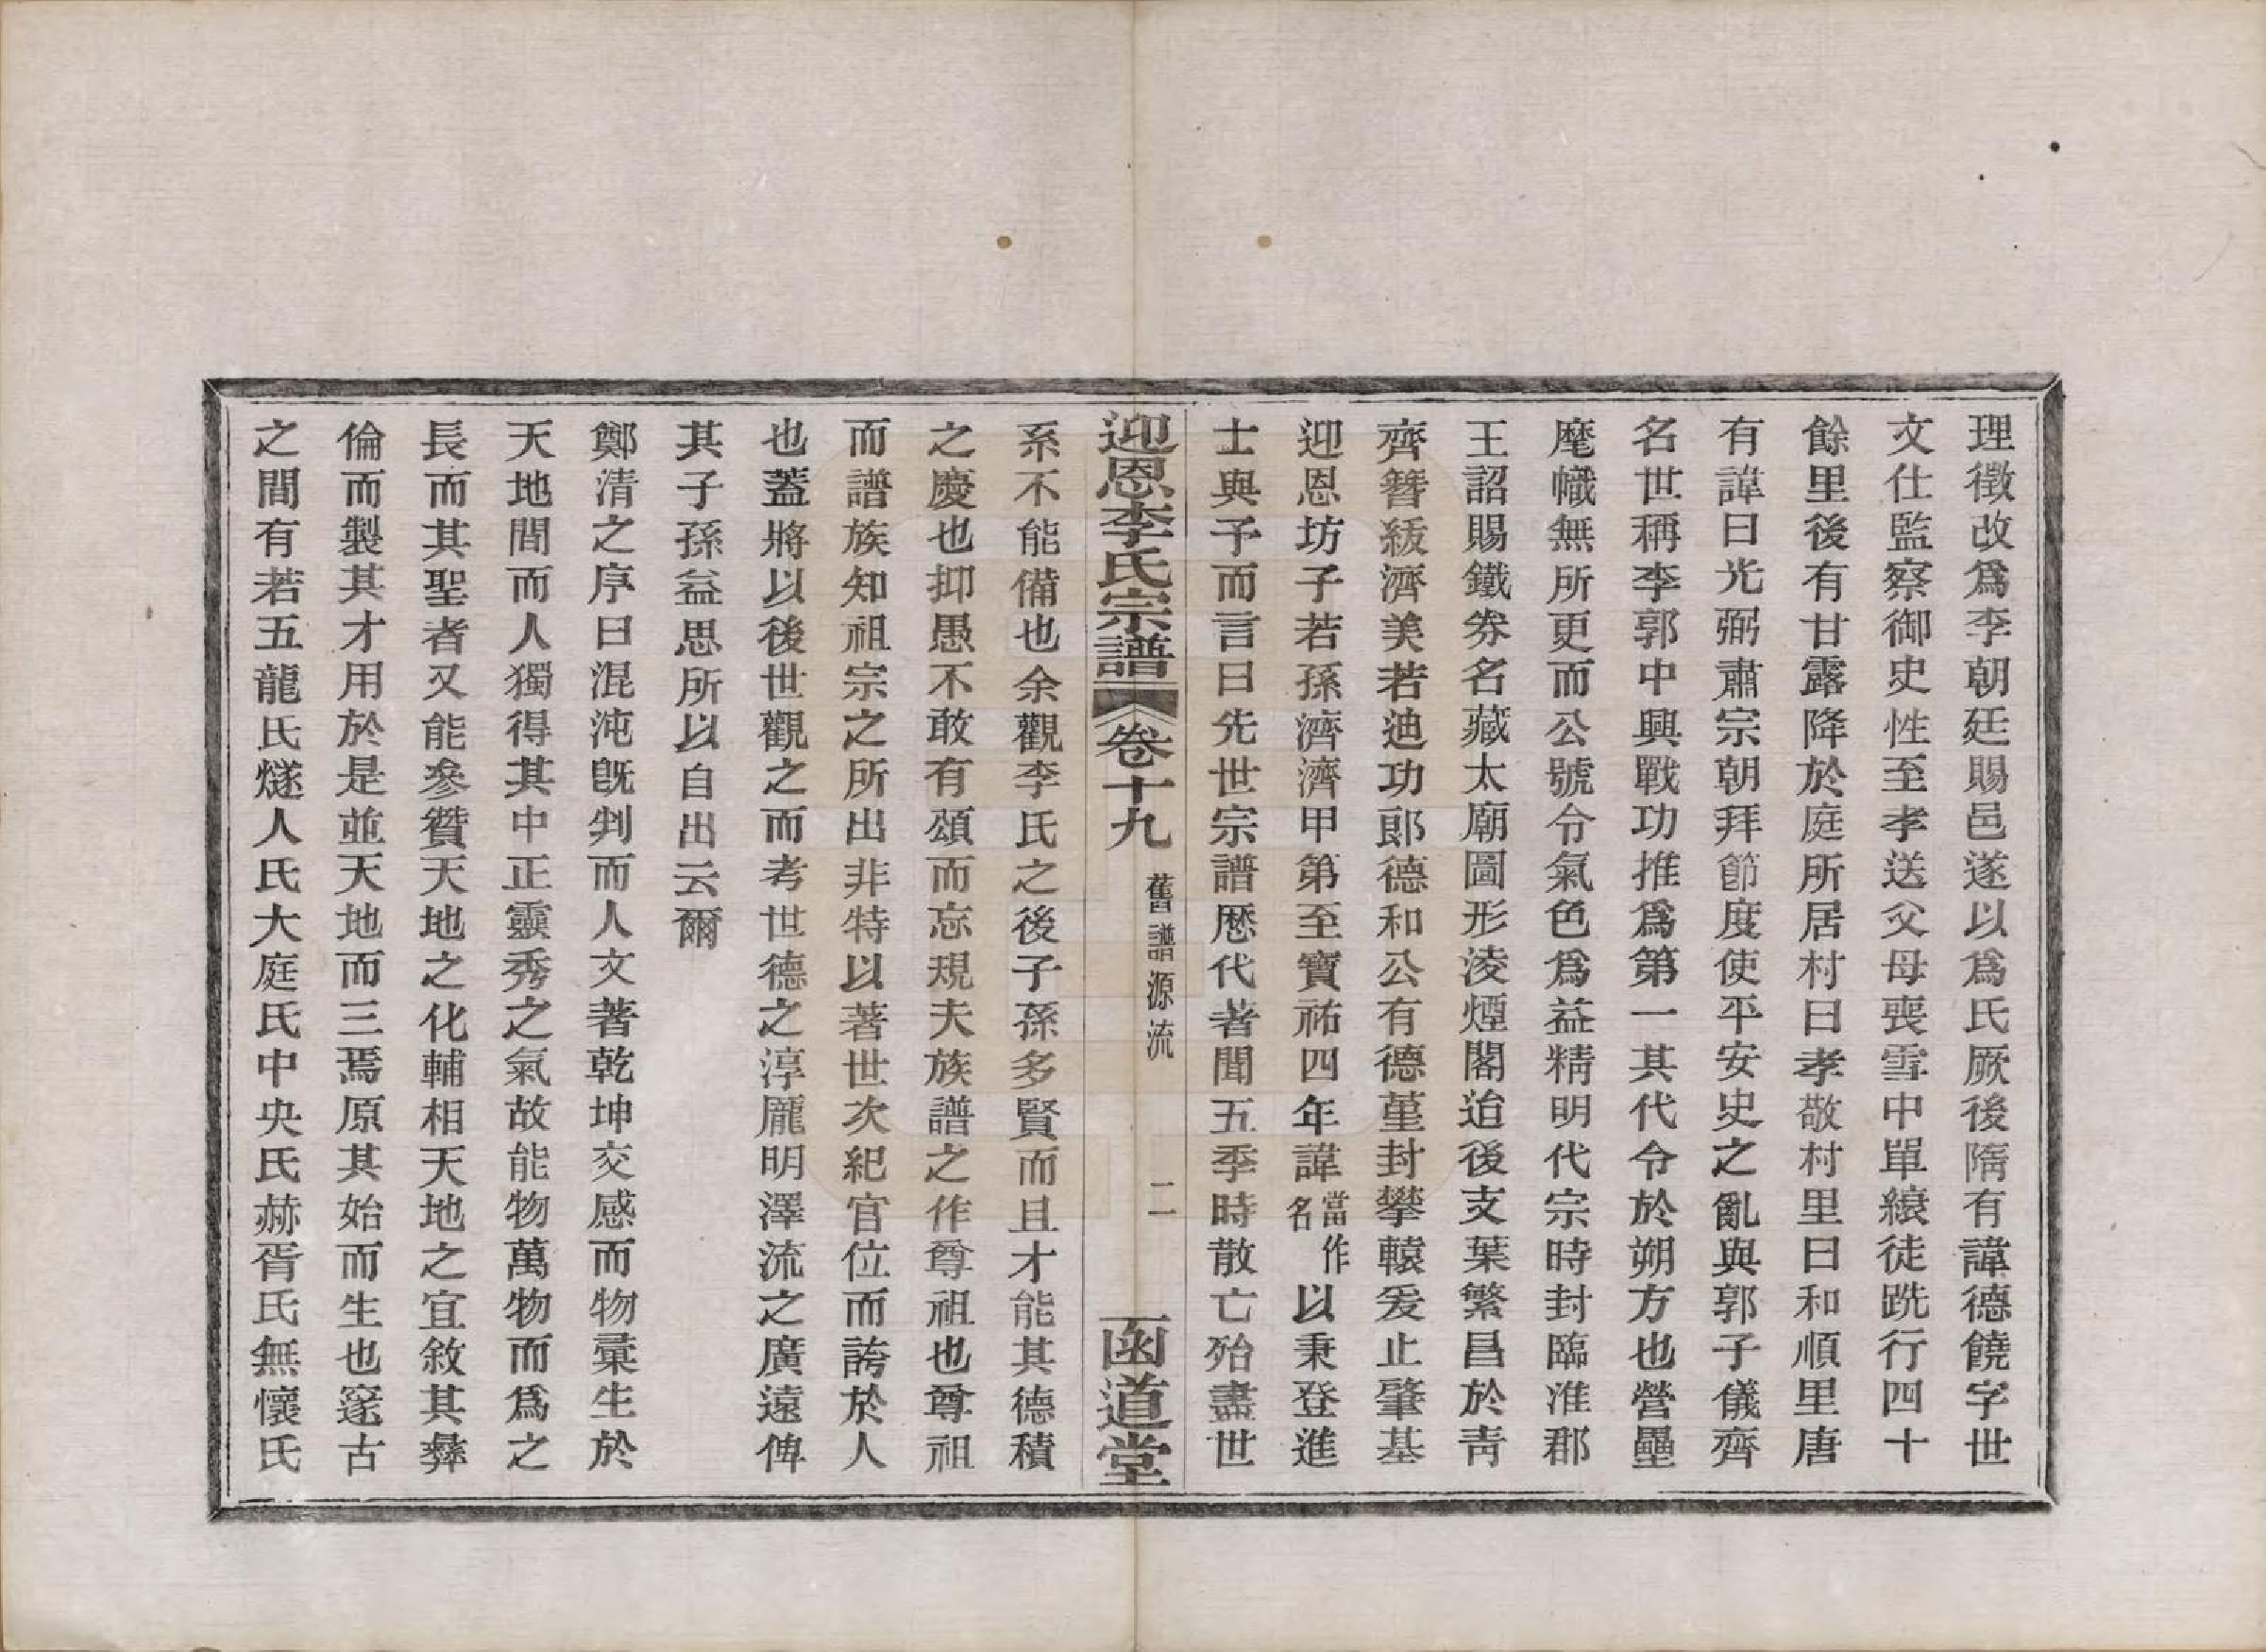 理徵改爲李朝廷賜邑遂以爲氏厥後隋有諱德饒字世
文仕監察御史性至孝送父母喪雪中單縗徒跣行四十
餘里後有甘露降於庭所居村曰孝敬村里曰和順里唐
有諱曰光弼肅宗朝拜節度使平安史之亂與郭子儀齊
名世稱李郭中興戰功推爲第一其代令於朔方也營壘
麾幟無所更而公號令氣色爲益精明代宗時封臨淮郡
王詔賜鐵券名藏太廟圖形淩煙閣迨後支葉繁昌於靑
齊簪紱濟美若迪功郞德和公有德堇封攀轅爰止肇基
迎恩坊子若孫濟濟甲第至寶祐四年諱當作名以秉登進
士與予而言曰先世宗譜歷代著聞五季時散亡殆盡世
迎恩李氏宗譜 卷十九 舊譜源流 二 函道堂
系不能備也余觀李氏之後子孫多賢而且才能其德積
之慶也抑愚不敢有頌而忘規夫族譜之作尊祖也尊祖
而譜族知祖宗之所出非特以著世次紀官位而誇於人
也蓋將以後世觀之而考世德之淳龐明澤流之廣遠俾
其子孫益思所以自出云爾
鄭清之序曰混沌旣判而人文著乾坤交感而物彙生於
天地間而人獨得其中正靈秀之氣故能物萬物而爲之
長而其聖者又能參贊天地之化輔相天地之宜敘其彝
倫而製其才用於是並天地而三焉原其始而生也邃古
之間有若五龍氏燧人氏大庭氏中央氏赫胥氏無懷氏